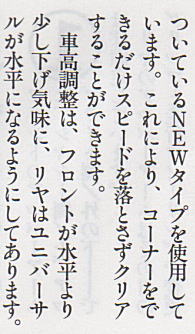 ついているNEWタイプを使用して
います。これにより、コーナーをで
きるだけスピードを落とさずクリア
することができます。
　車高調整は、フロントが水平より
少し下げ気味に、リヤはユニバーサ
ルが水平になるようにしてあります。